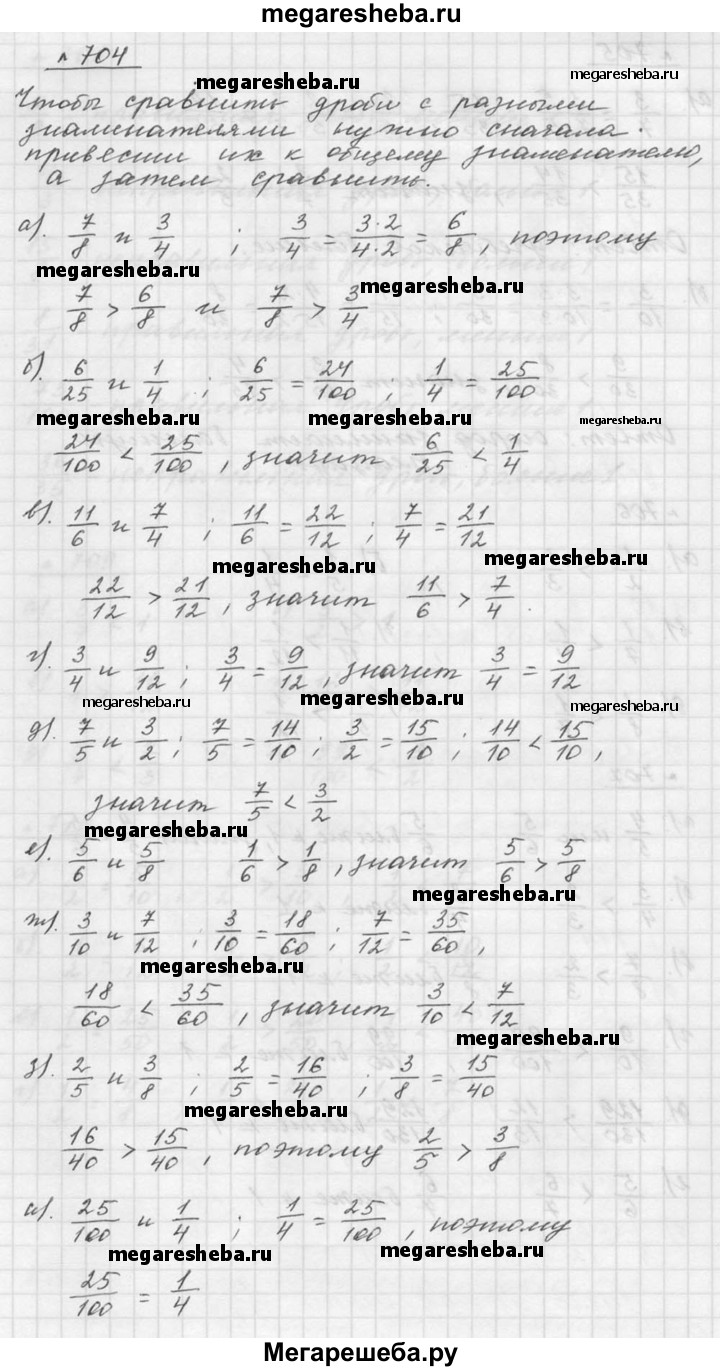 megaresheba.ru
№ 704
megaresheba.ru megaresheba.ru
Чтобы сравнить дроби с разными
знаменателями нужно сначала
привести их к общему знаменателю,
а затем сравнить.
а). 7/8 и 3/4 ; 3/4 = 3·2/4·2 = 6/8, поэтому
megaresheba.ru megaresheba.ru
7/8 > 6/8 и 7/8 > 3/4
б). 6/25 и 1/4 ; 6/25 = 24/100 ; 1/4 = 25/100
megaresheba.ru megaresheba.ru megaresheba.ru
24/100 < 25/100, значит 6/25 < 1/4
в). 11/6 и 7/4 ; 11/6 = 22/12 ; 7/4 = 21/12
megaresheba.ru megaresheba.ru
22/12 > 21/12, значит 11/6 > 7/4.
г). 3/4 и 9/12 ; 3/4 = 9/12, значит 3/4 = 9/12
megaresheba.ru megaresheba.ru megaresheba.ru
д). 7/5 и 3/2 ; 7/5 = 14/10 ; 3/2 = 15/10 ; 14/10 < 15/10,
значит 7/5 < 3/2
megaresheba.ru megaresheba.ru
е). 5/6 и 5/8 1/6 > 1/8, значит 5/6 > 5/8
megaresheba.ru
ж). 3/10 и 7/12 ; 3/10 = 18/60 ; 7/12 = 35/60,
megaresheba.ru
18/60 < 35/60, значит 3/10 < 7/12
megaresheba.ru
з). 2/5 и 3/8 ; 2/5 = 16/40 ; 3/8 = 15/40
megaresheba.ru
16/40 > 15/40, поэтому 2/5 > 3/8
и). 25/100 и 1/4 ; 1/4 = 25/100, поэтому
megaresheba.ru megaresheba.ru
25/100 = 1/4
Мегарешеба.ру